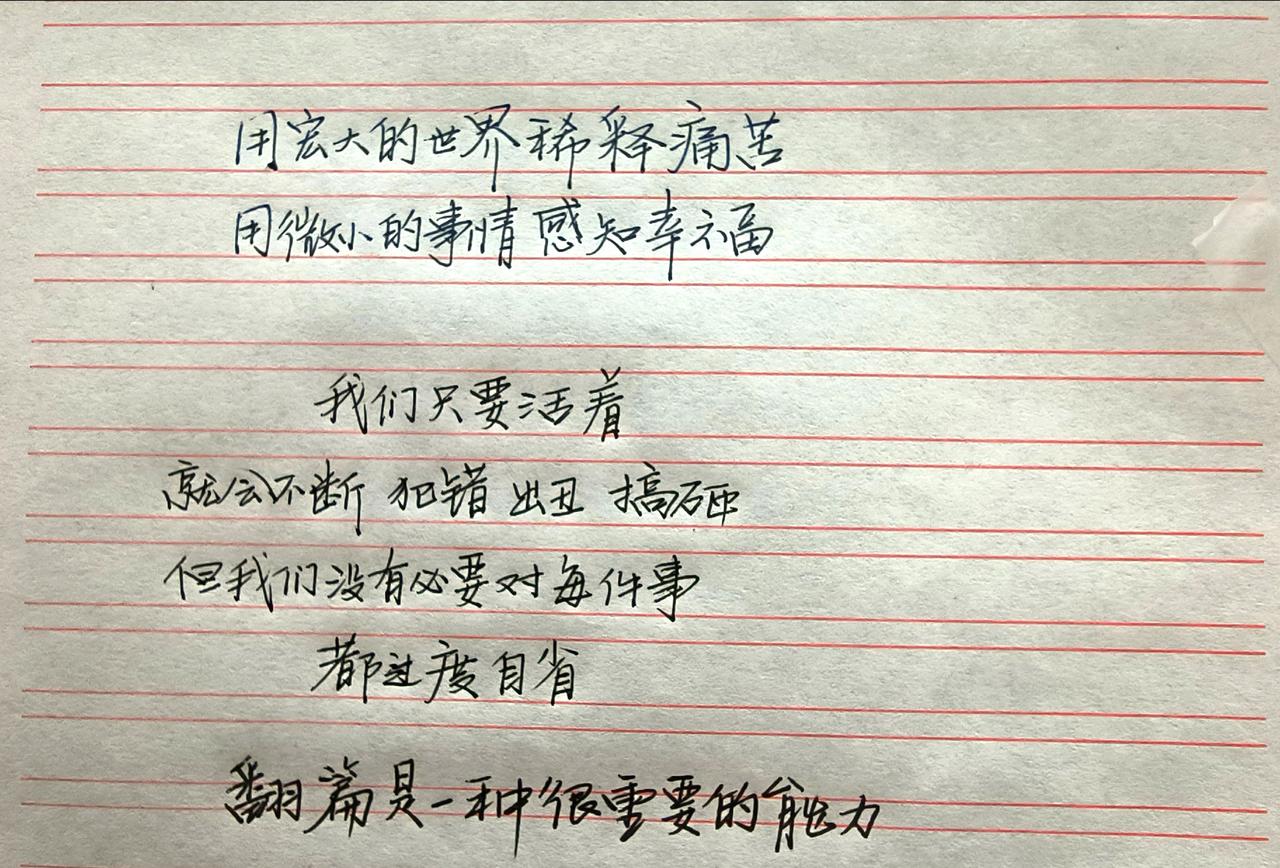 用宏大的世界稀释痛苦
用微小的事情感知幸福
我们只要活着
就会不断 犯错 出丑 搞砸
但我们没有必要对每件事
都过度自省
翻篇是一种很重要的能力